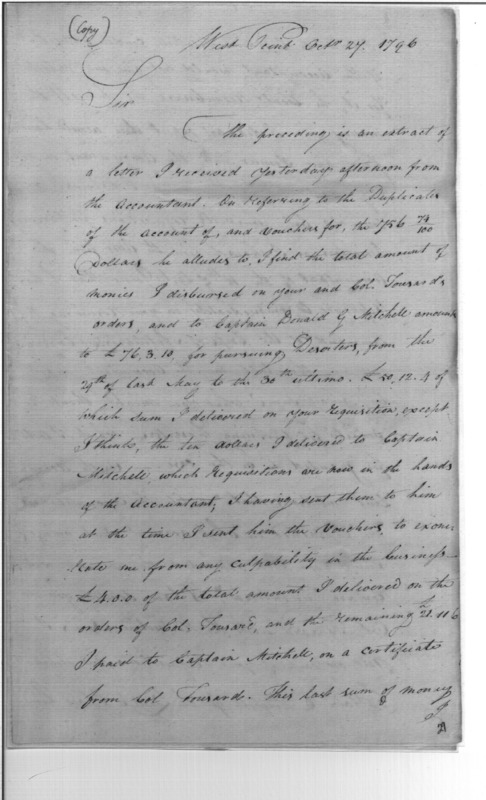 (Copy)
West Point Octr 27. 1796
Sir
The preceding is an extract of
a letter I received yesterday afternoon from
the Accountant. On referring to the Duplicates
of the account of, and vouchers for, the 756 79/100
Dollars he alludes to, I find the total amount of
monies I disbursed on your and Col. Tousards
orders, and to Captain Donald G Mitchell amounts
to £76.3.10, for pursuing Deserters, from the
29th of last May to the 30th ultimo. £50.12.4 of
which sum I delivered on your requisition, except
I think, the ten dollars I delivered to Captain
Mitchell, which Requisitions are now in the hands
of the Accountant; I having sent them to him
at the time I sent him the vouchers, to exone-
rate me from any culpability in the business
£4.0.0. of the total amount I delivered on the
orders of Col. Tousard, and the remaining £21.11.6
I paid to Captain Mitchell, on a certificate
from Col Tousard. This last sum of money
I